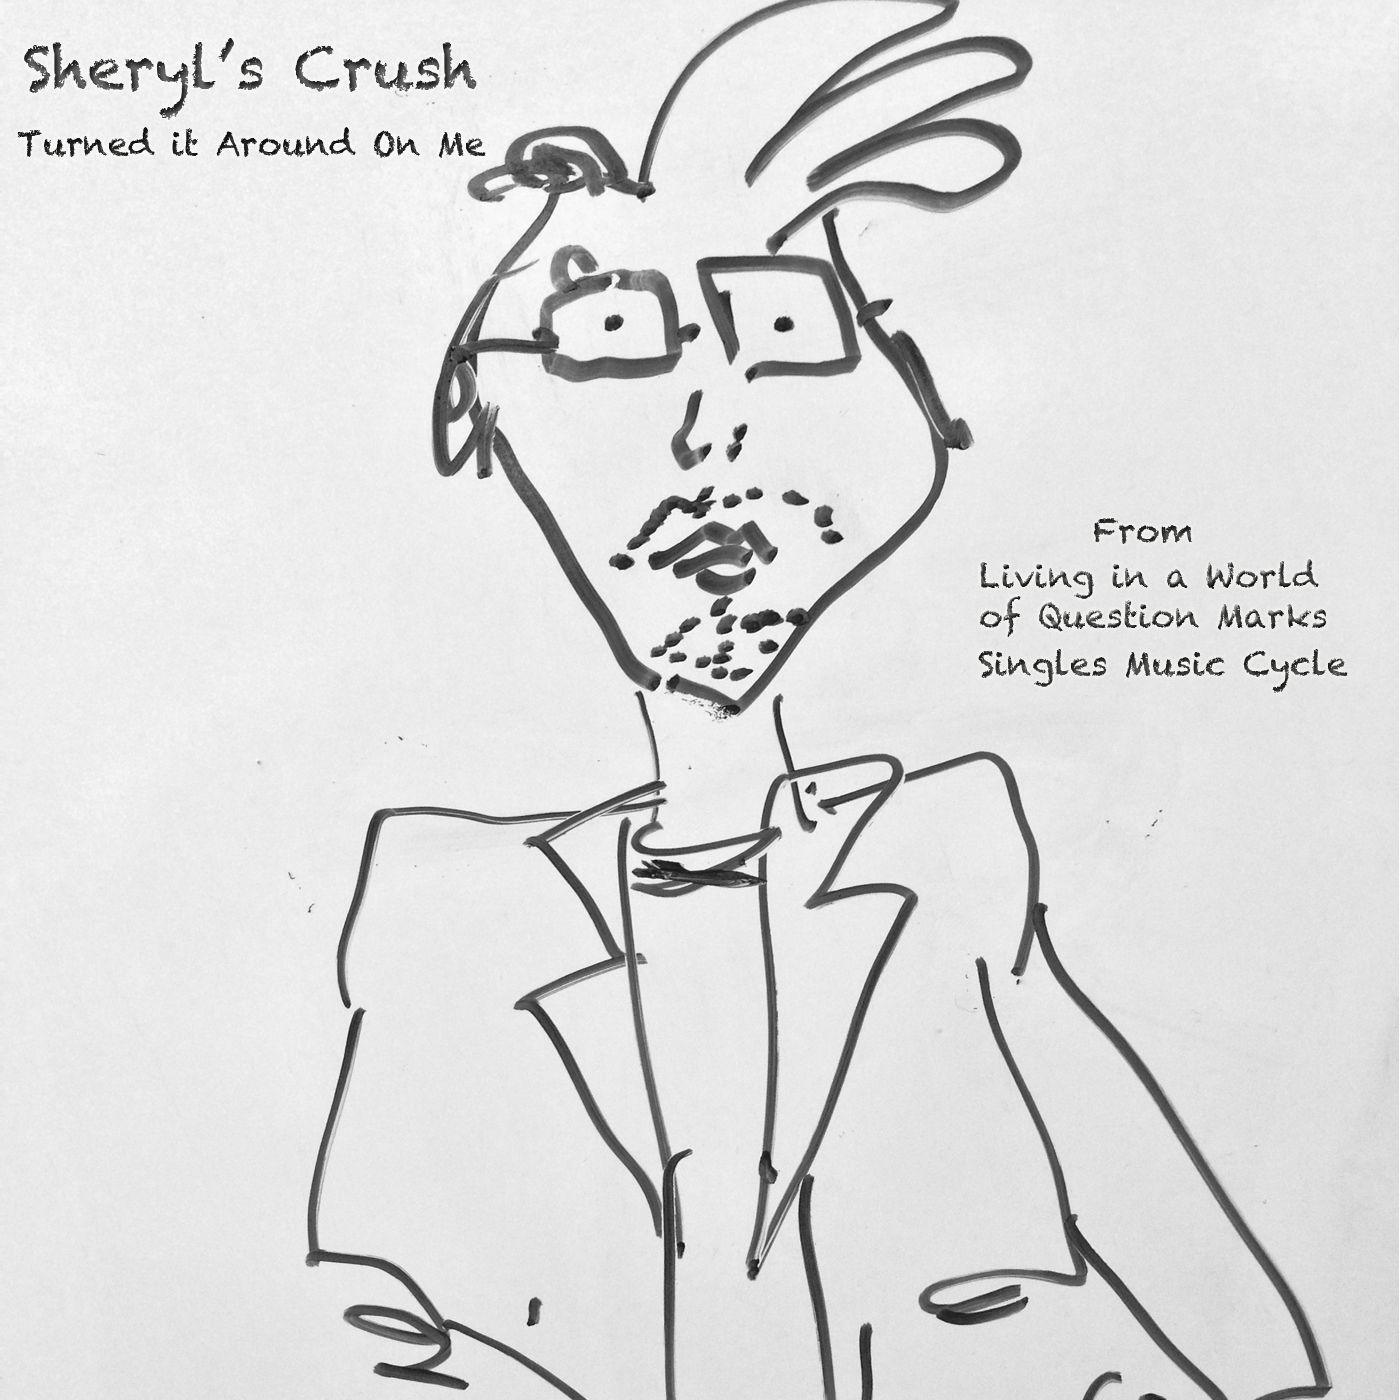 Sheryl's Crush
Turned it Around On Me
From
Living in a World
of Question Marks
Singles Music Cycle